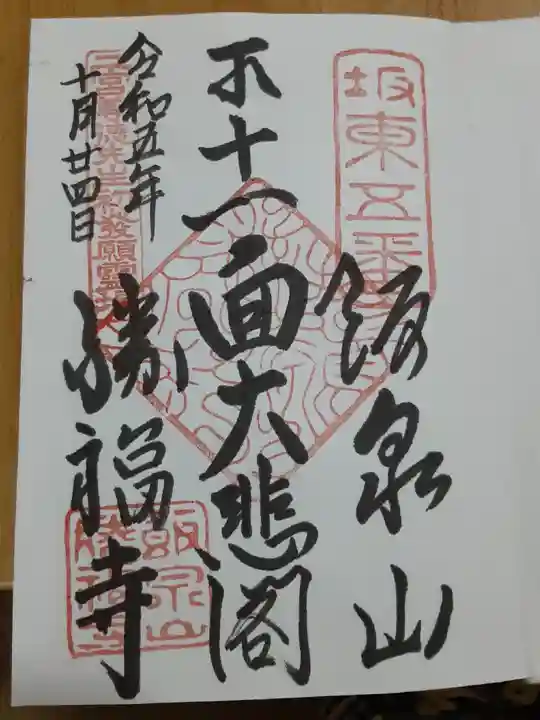 坂東五番
飯泉山
十一面大悲閣
令和五年
十月廿四日
勝福寺
飯泉山
勝福寺